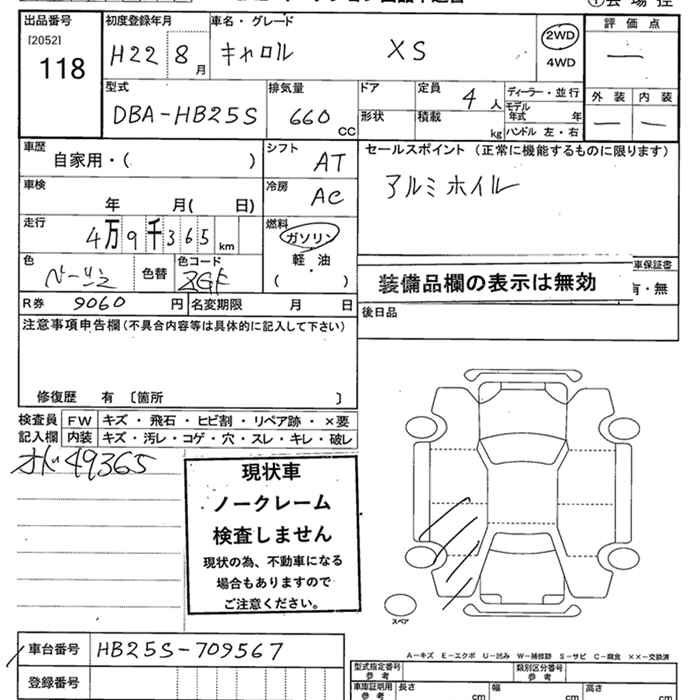 出品番号 初度登録年月 車名・グレード 評価点
[2052]
118 H22 8月 キャロル XS 2WD 4WD —
型式 排気量 ドア 定員 ディーラー・並行 外装 内装
DBA-HB25S 660 CC 4人 モデル年式 年 — —
形状 積載 kg ハンドル 左・右
車歴 シフト セールスポイント(正常に機能するものに限ります)
自家用・( ) AT アルミホイル
車検 冷房
年 月( 日) AC
走行 燃料
4万9千365km ガソリン
軽油
( )
色 色替 色コード 車保証書
ZGF 装備品欄の表示は無効 有・無
R券 9060円 名変期限 月 日 後日品
注意事項申告欄(不具合内容等は具体的に記入して下さい)
修復歴 有 〔箇所 〕
検査員 FW キズ・飛石・ヒビ割・リペア跡・×要
記入欄 内装 キズ・汚レ・コゲ・穴・スレ・キレ・破レ
オド49365
現状車
ノークレーム
検査しません
現状の為、不動車になる
場合もありますので
ご注意ください。
スペア
車台番号 HB25S-709567
A-キズ E-エクボ U-凹み W-補修跡 S-サビ C-腐食 ××-交換済
登録番号
型式指定番号 参考 類別区分番号 参考
車庫証明用 参考 長さ cm 幅 cm 高さ cm